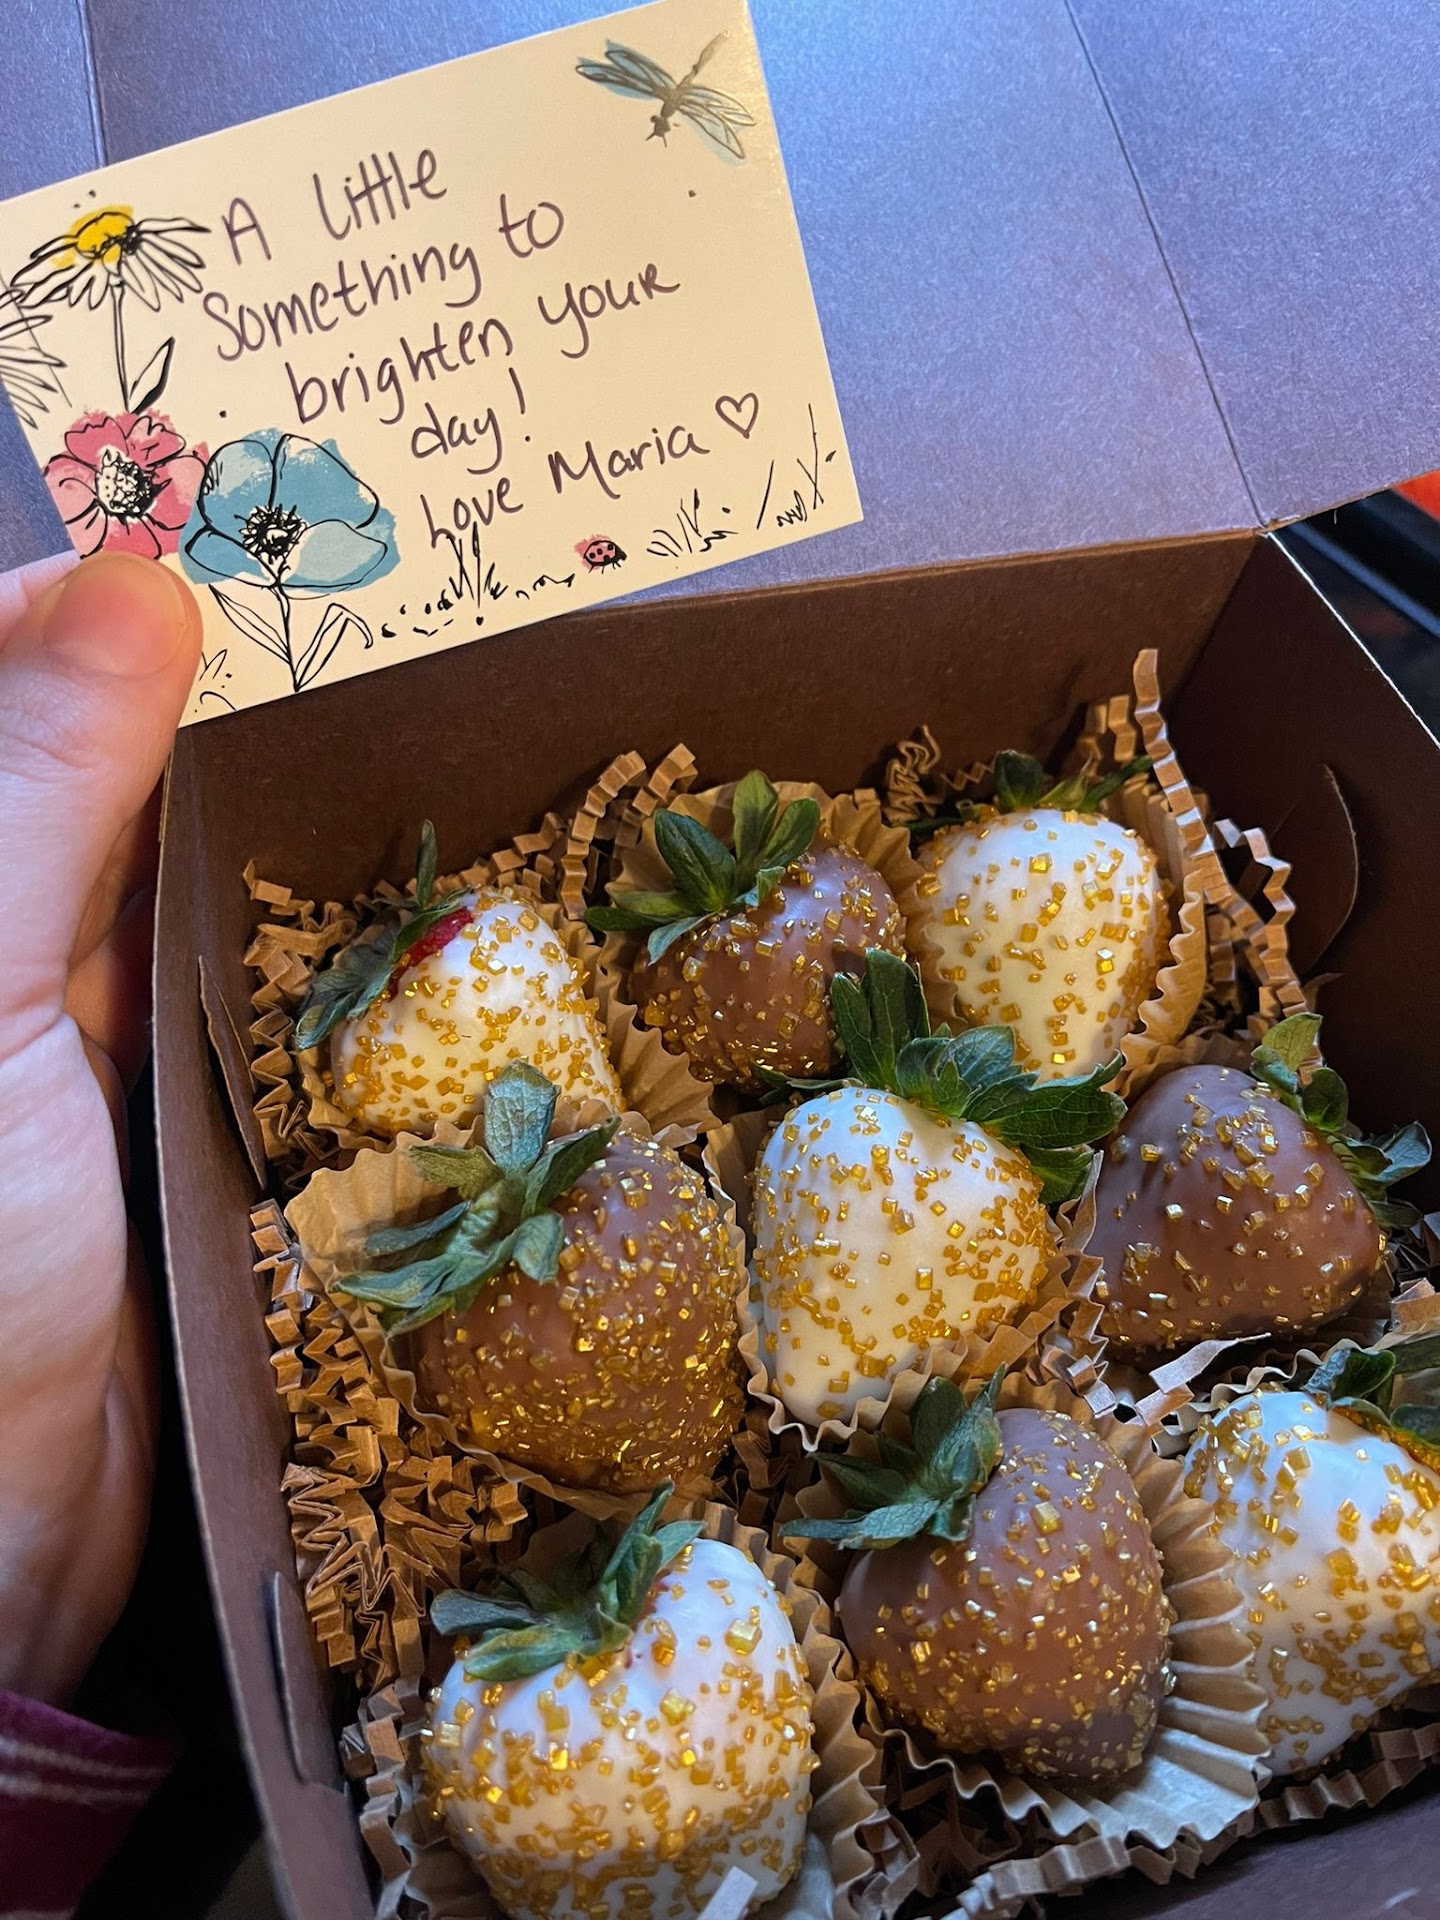 A little
Something to
brighten your
day!
Love Maria ♡